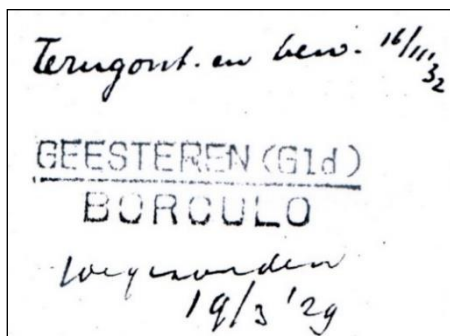 Terugont. en bew. 16/III 32
GEESTEREN (Gld)
BORCULO
toegezonden
19/3 '29